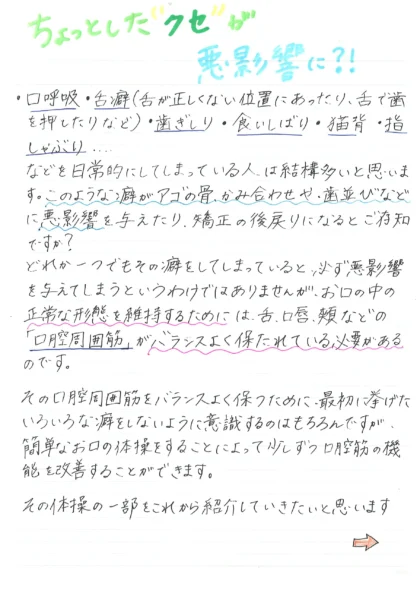 ちょっとした"クセ"が
悪影響に?!
・口呼吸・舌癖(舌が正しくない位置にあったり、舌で歯
を押したりなど)・歯ぎしり・食いしばり・猫背・指
しゃぶり....
などを日常的にしてしまっている人は結構多いと思いま
す。このような癖がアゴの骨、かみ合わせや、歯並びなど
に悪影響を与えたり、矯正の後戻りになるとご存知
ですか?
どれか一つでもその癖をしてしまっていると、必ず悪影響
を与えてしまうというわけではありませんが、お口の中の
正常な形態を維持するためには、舌、口唇、頬などの
「口腔周囲筋」がバランスよく保たれている必要がある
のです。
その口腔周囲筋をバランスよく保つために、最初に挙げた
いろいろな癖をしないように意識するのはもちろんですが、
簡単なお口の体操をすることによって少しずつ口腔筋の機
能を改善することができます。
その体操の一部をこれから紹介していきたいと思います